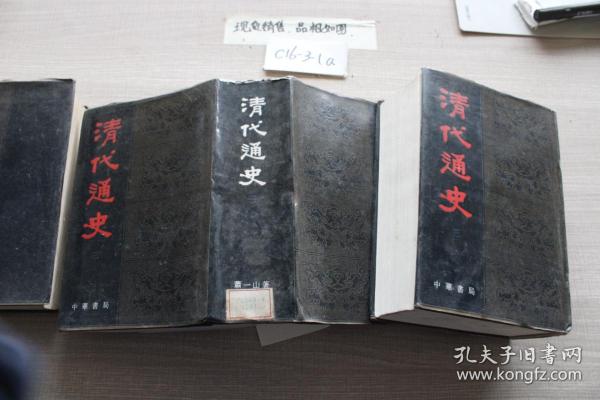 现货销售,品相如图
C16-3-1a
清代通史
中華書局
清代通史
三
蕭一山著
清代通史
三
中華書局
孔夫子旧书网
www.kongfz.com